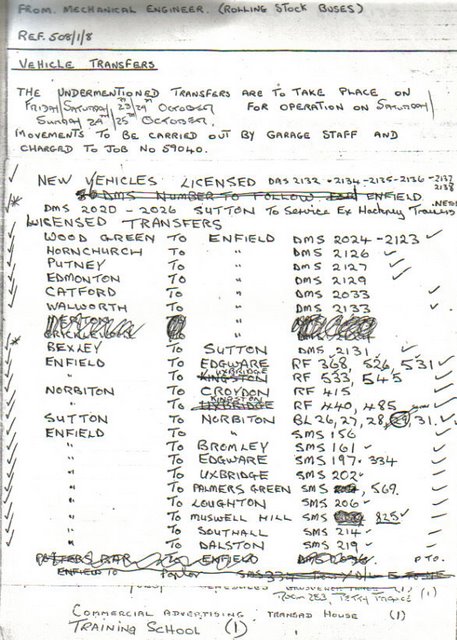 FROM. MECHANICAL ENGINEER. (ROLLING STOCK BUSES)
REF. 508/1/8
VEHICLE TRANSFERS
THE UNDERMENTIONED TRANSFERS ARE TO TAKE PLACE ON
FRIDAY/SATURDAY 23RD/24TH OCTOBER FOR OPERATION ON SATURDAY/
SUNDAY 24TH/25TH OCTOBER.
MOVEMENTS TO BE CARRIED OUT BY GARAGE STAFF AND
CHARGED TO JOB NO 59040.
NEW VEHICLES LICENSED DMS 2132 -2134-2135-2136 -2137
2138
DMS NUMBER TO FOLLOW ENFIELD
DMS 2020 - 2026 SUTTON TO Service Ex Hackney
LICENSED TRANSFERS
WOOD GREEN TO ENFIELD DMS 2024 -2123
HORNCHURCH TO " DMS 2126
PUTNEY TO " DMS 2127
EDMONTON TO " DMS 2129
CATFORD TO " DMS 2033
WALWORTH TO " DMS 2133
BEXLEY TO SUTTON DMS 2131
ENFIELD TO EDGWARE RF 368, 526, 531
" TO UXBRIDGE KINGSTON RF 533, 545
NORBITON TO CROYDON RF 415
" TO KINGSTON UXBRIDGE RF 440, 485
SUTTON TO NORBITON BL 26, 27, 28, 29, 31.
ENFIELD TO " SMS 156
" TO BROMLEY SMS 161
" TO EDGWARE SMS 197. 334
" TO UXBRIDGE SMS 202
" TO PALMERS GREEN SMS 569.
" TO LOUGHTON SMS 206
" TO MUSWELL HILL SMS 825
" TO SOUTHALL SMS 214
" TO DALSTON SMS 219
POTTERS BAR TO ENFIELD PTO.
ENFIELD TO
ROOM 283, (1)
COMMERCIAL ADVERTISING. TRANSAD HOUSE (1)
TRAINING SCHOOL (1)